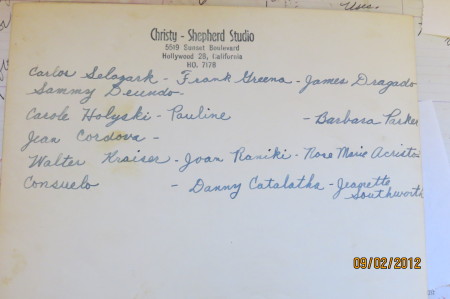 Uses.
Christy - Shepherd Studio
5519 Sunset Boulevard
Hollywood 28, California
HO. 7178
Carlos Selagark - Frank Greena - James Dragado
Sammy Deundo -
Carole Holyski - Pauline - Barbara Parker
Jean Cordova -
Walter Kraiser - Joan Raniki - Rose Marie Acristo
Consuelo - Danny Catalatha - Jeanette
Southworth
09/02/2012